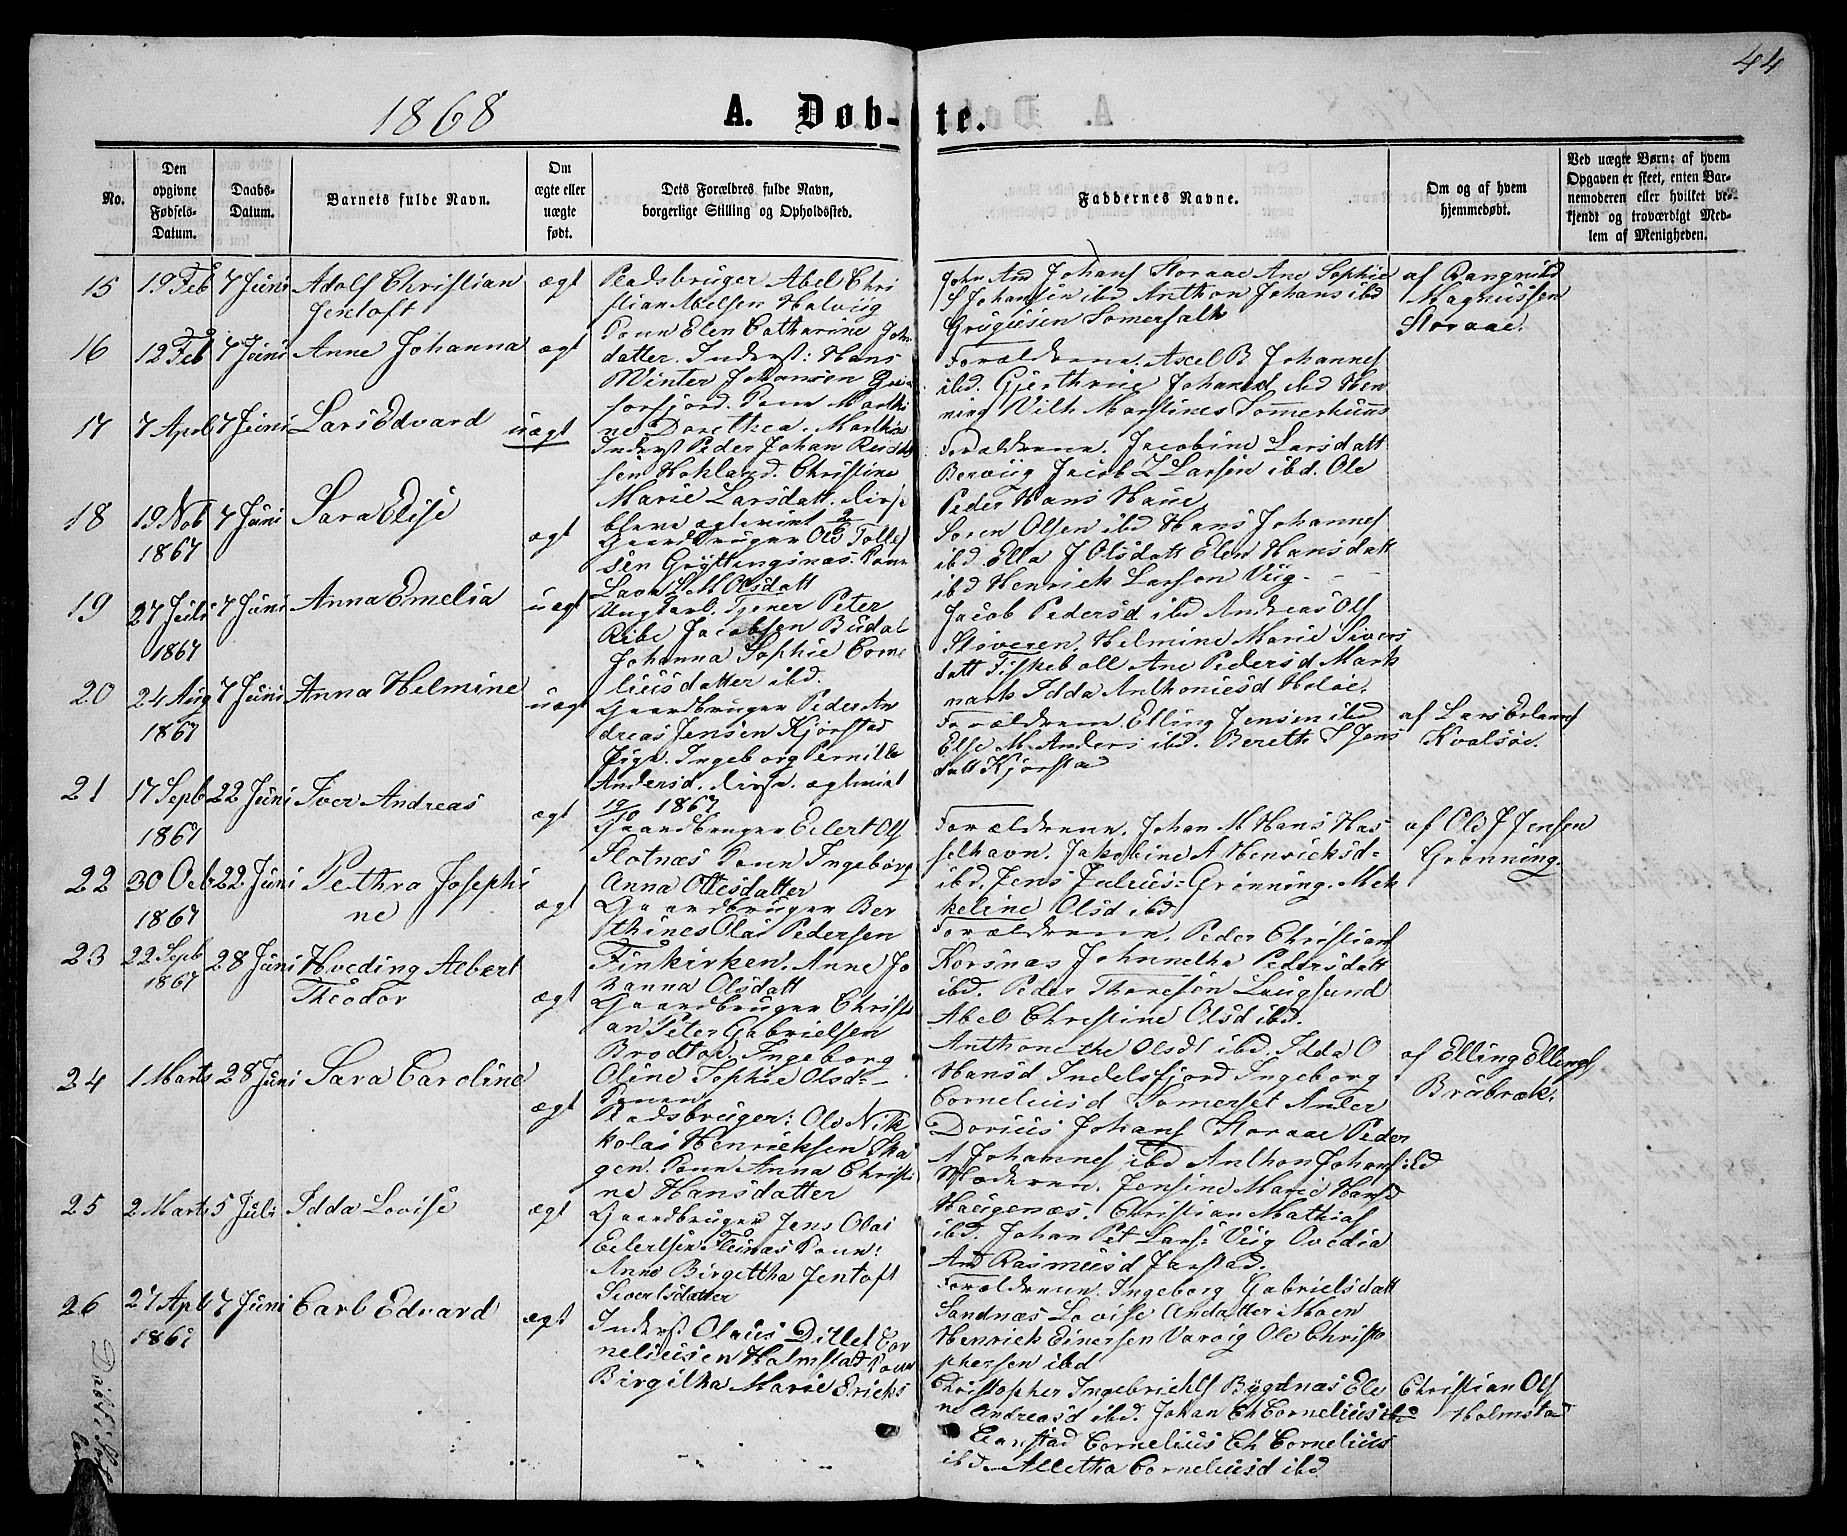 44
1868
A. Døb-te.
No.
Den opgivne Fødsels-Datum.
Daabs-Datum.
Barnets fulde Navn.
Om ægte eller uægte født.
Dets Forældres fulde Navn, borgerlige Stilling og Opholdssted.
Faddernes Navne.
Om og af hvem hjemmedøbt.
Ved uægte Børn; af hvem Opgaven er skeet, enten Barnemoderen eller hvilket bekjendt og troværdigt Medlem af Menigheden.
15 19 Feb 7 Juni Adolf Christian Jentoft ægt
Pladsbruger Abel Chri
stian Abelsen Halvig
Konn Elen Catharine Joh
datter.
Johans Storaae Ane Sophie
S Johansen ibd Anthon Johans ibd
Somersalt
af Rangnild
Magnussen
Storaae.
16 12 Feb 7 Juni Anne Johanna ægt
Inderst: Hans
Winter Johansen Gre
forfjord. Konn Marthi
ne Dorethea. Mathis
Forældrene. Axel B Johannes
ibd. Gjerthrue Johansd ibd Hen
ning Vilh Marstines Sommerhuus
17 7 Apl 7 Juni Lars Edvard uægt
Inderst Peder Johan
sen Hokland. Christine
Marie Larsdatt. disse
bleve ægteviet 2/6
Forældrene. Jacobine Larsdatt
Bervig Jacob L Larsen ibd. Ole
Peder Hans Haue
18 19 Nob 1867 7 Juni Sara Elise ægt
Gaardbruger Ole Tolles
sen Gryttingsnæs. Konn
Lava L M Olsdatt
Søren Olsen ibd Hans Johannes
ibd. Ella J Olsdatt Elen Hansdatt
ibd Henrich Larson Viig
19 27 Juli 1867 7 Juni Anna Emelia uægt
Ungkarl. Tjener Peter
Ribe Jacobsen Budal
Johanna Sophie Corne
liusdatter ibd.
Jacob Pedersd ibd Andreas Ols
Støveren. Helmine Marie Sivers
datt Fiskebøll Ane Pedersd Mark
nark Idda Anthoniesd Holøe.
20 24 Aug 1867 7 Juni Anna Helmine uægt
Gaardbruger Peder An
dreas Jensen Kjørstad
Pige. Ingeborg Pernille
Andersd. disse. ægteviet
19/10 1867
Forældrene. Elling Jensen ibd
Else M. Anders ibd. Bereth S Jens
datt Kjørstad
af Lars Erlands
Kvalsøe.
21 17 Sepb 1867 22 Juni Iver Andreas ægt
Gaardbruger Eilert Ols
Slotnæs Konn Ingeborg
Anna Ottesdatter
Forældrene. Johan M Hans Has
selhavn. Jakobine A Henriksd-
ibd. Jens Julius Grønning. Mek
keline Olsd ibd
af Ole J Jensen
Grønning.
22 30 Octb 1867 22 Juni Pethra Josephi
ne ægt
Gaardbruger Ber
thines Olai Pedersen
Finkirken. Anne Jo
hanna Olsdatt
Forældrene. Peder Christians
Korsnæs Johnnetha Pedersdatt
ibd. Peder Thoresen Laugsund
Abel Christine Olsd ibd.
23 22 Sepb 1867 28 Juni Hveding Albert
Theodor ægt
Gaardbruger Christi
an Peter Gabrielsen
Brodtøe. Ingeborg
Oline Sophie Olsd-
Anthonethe Olsdt ibd. Idda O
Hansd Indelsfjord Ingeborg
Corneliusd Somerset Ander
af Elling Ellings
Bråbræk.
24 1 Marts 28 Juni Sara Caroline ægt
Pladsbruger: Ole Nik
kolai Henriksen Ska
gen. Konn Anna Christi
ne Hansdatter
Dorius Johans Storaae Peder
A Johannes ibd Anthon Johans ibd
Moderen. Jensine Marie Hansd
Haugenæs. Christian Mathias
ibd. Johan Pet Lars Viig Ovedia
And Rasmusd Jørstad.
25 2 Marts 5 Juli Idda Lovise ægt
Gaardbruger Jens Olai
Eilertsen Fleinæs Konn:
Anne Birgettha Jentoft
Sivertsdatter
Forældrene. Ingeborg Gabrielsdatt
Sandnæs Lovise Andatter Moen
Henrich Einersen Varvig Ole Christo
phersen ibd
26 27 Apl 7 Juni Carl Edvard ægt
Inderst Olaus Ditlef Cor
neliusen Holmstad Konn
Birgitha Marie Ericks
Christopher Ingebrichts Bygdnæs Ele
ne Andreasd ibd. Johan Ch Cornelius
Cornelius Ch Cornelius
ibd. Alletha Corneliusd ibd
Christian Ols
Holmstad